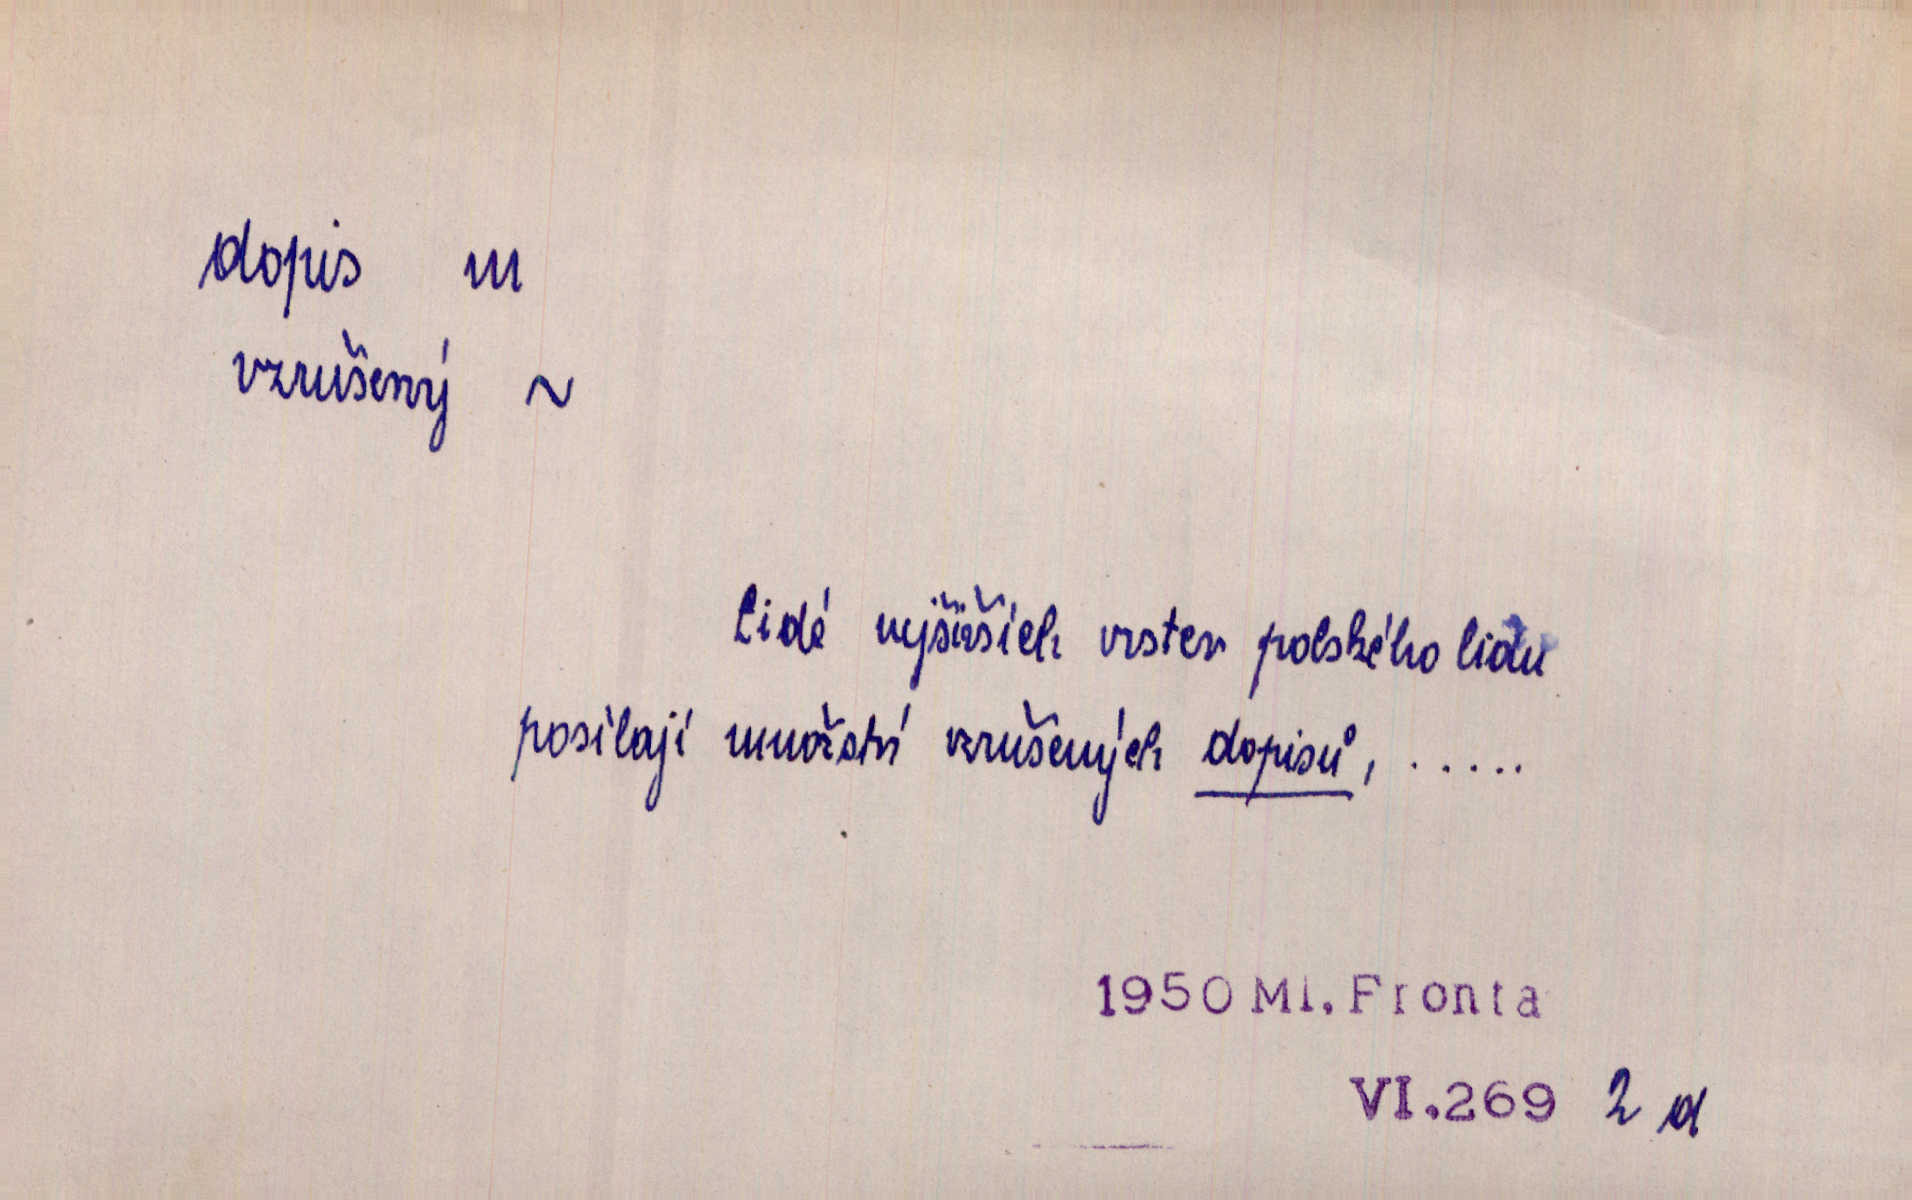 dopis m
vzrušený ~
Lidé nejširších vrstev polského lidu
posílají množství vzrušených dopisů, .....
1950 Ml. Fronta
VI.269 2 d